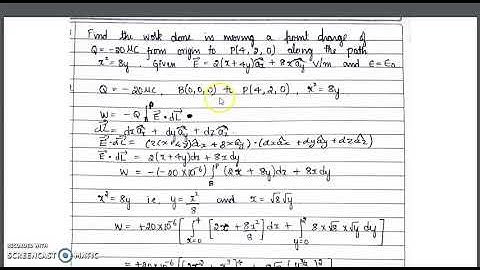 Find the work done in moving a point charge of
Q = -20 μC from origin to P(4, 2, 0) along the path
x² = 8y. Given E⃗ = 2(x+4y)a⃗x + 8x a⃗y V/m and ε = ε₀
Q = -20 μC, B(0, 0, 0) to P(4, 2, 0), x² = 8y
W = -Q ∫_B^P E⃗ • dL⃗
dL⃗ = dx âx + dy ây + dz âz
E⃗ • dL⃗ = (2(x+4y)âx + 8x ây) • (dx âx + dy ây + dz âz)
E⃗ • dL⃗ = 2(x+4y)dx + 8x dy
W = -(-20×10⁻⁶) ∫_B^P (2x + 8y)dx + 8x dy
x² = 8y i.e. y = x²/8 and x = √8 √y
W = +20×10⁻⁶ [ ∫_{x=0}^4 [2x + 8x²/8] dx + ∫_{y=0}^2 8×√8 × √y dy ]
RECORDED WITH
SCREENCAST-O-MATIC